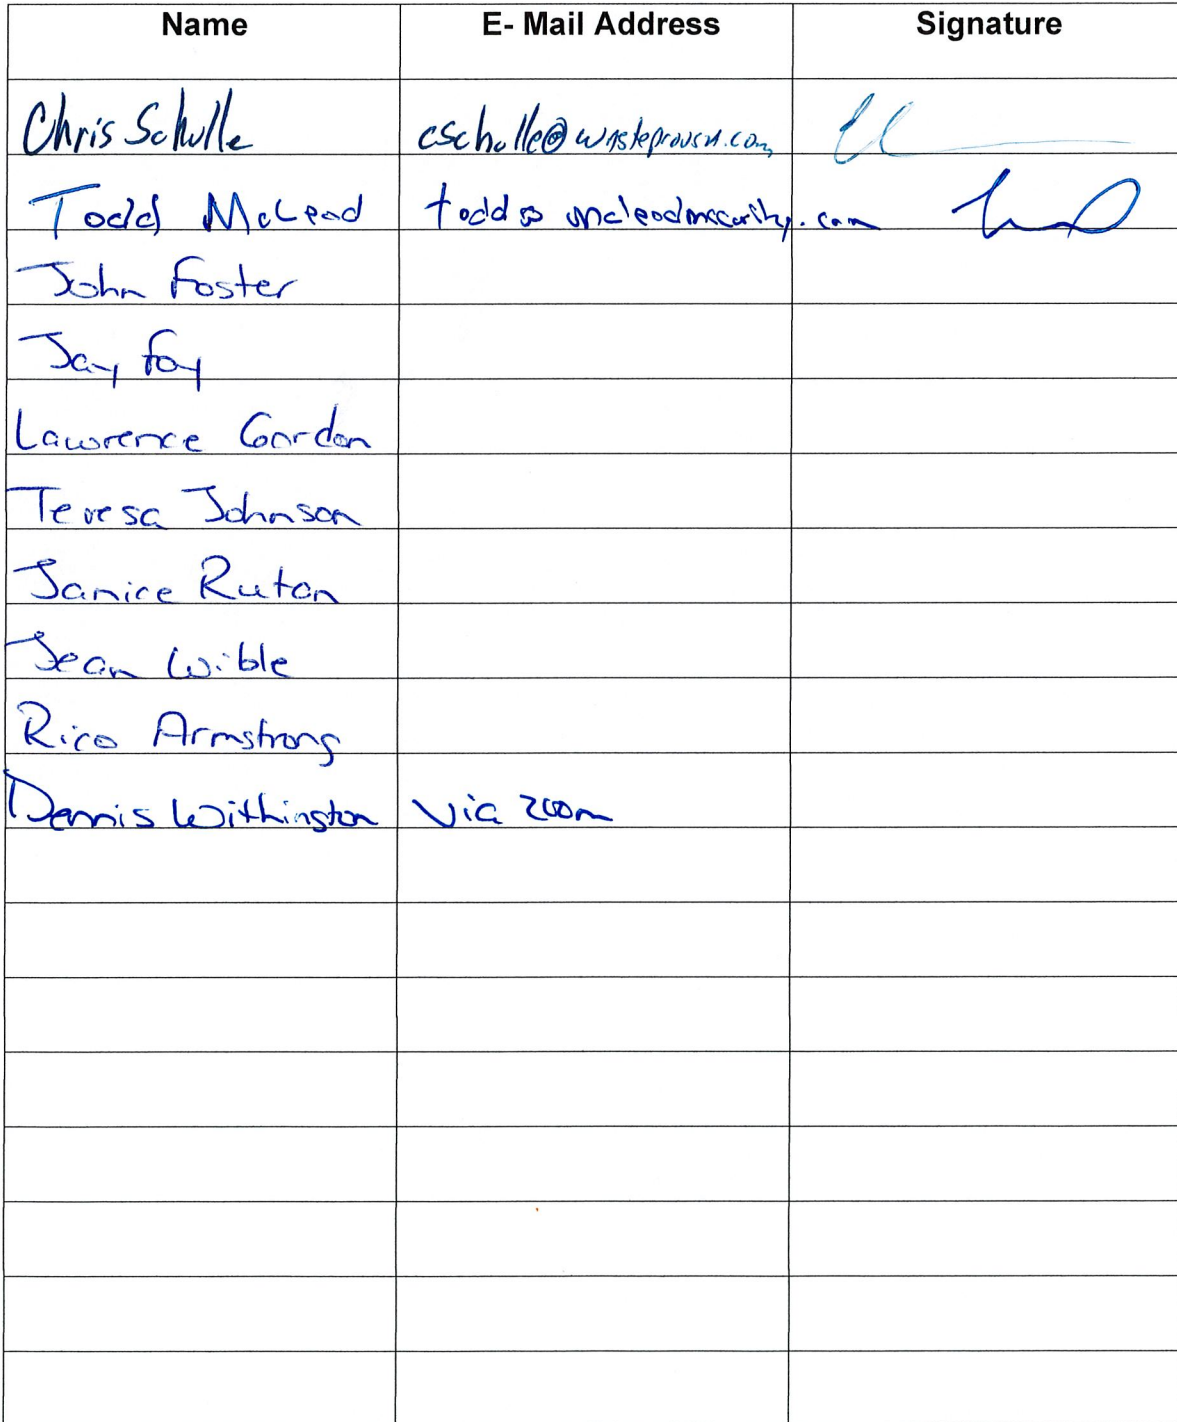 Name E- Mail Address Signature
Chris Schulle cschulle@wasteprousa.com
Todd McLeod todd@mcleodmccarthy.com
John Foster
Jay Foy
Lawrence Gordon
Teresa Johnson
Janice Rutan
Jean Wible
Rico Armstrong
Dennis Withington Via Zoom